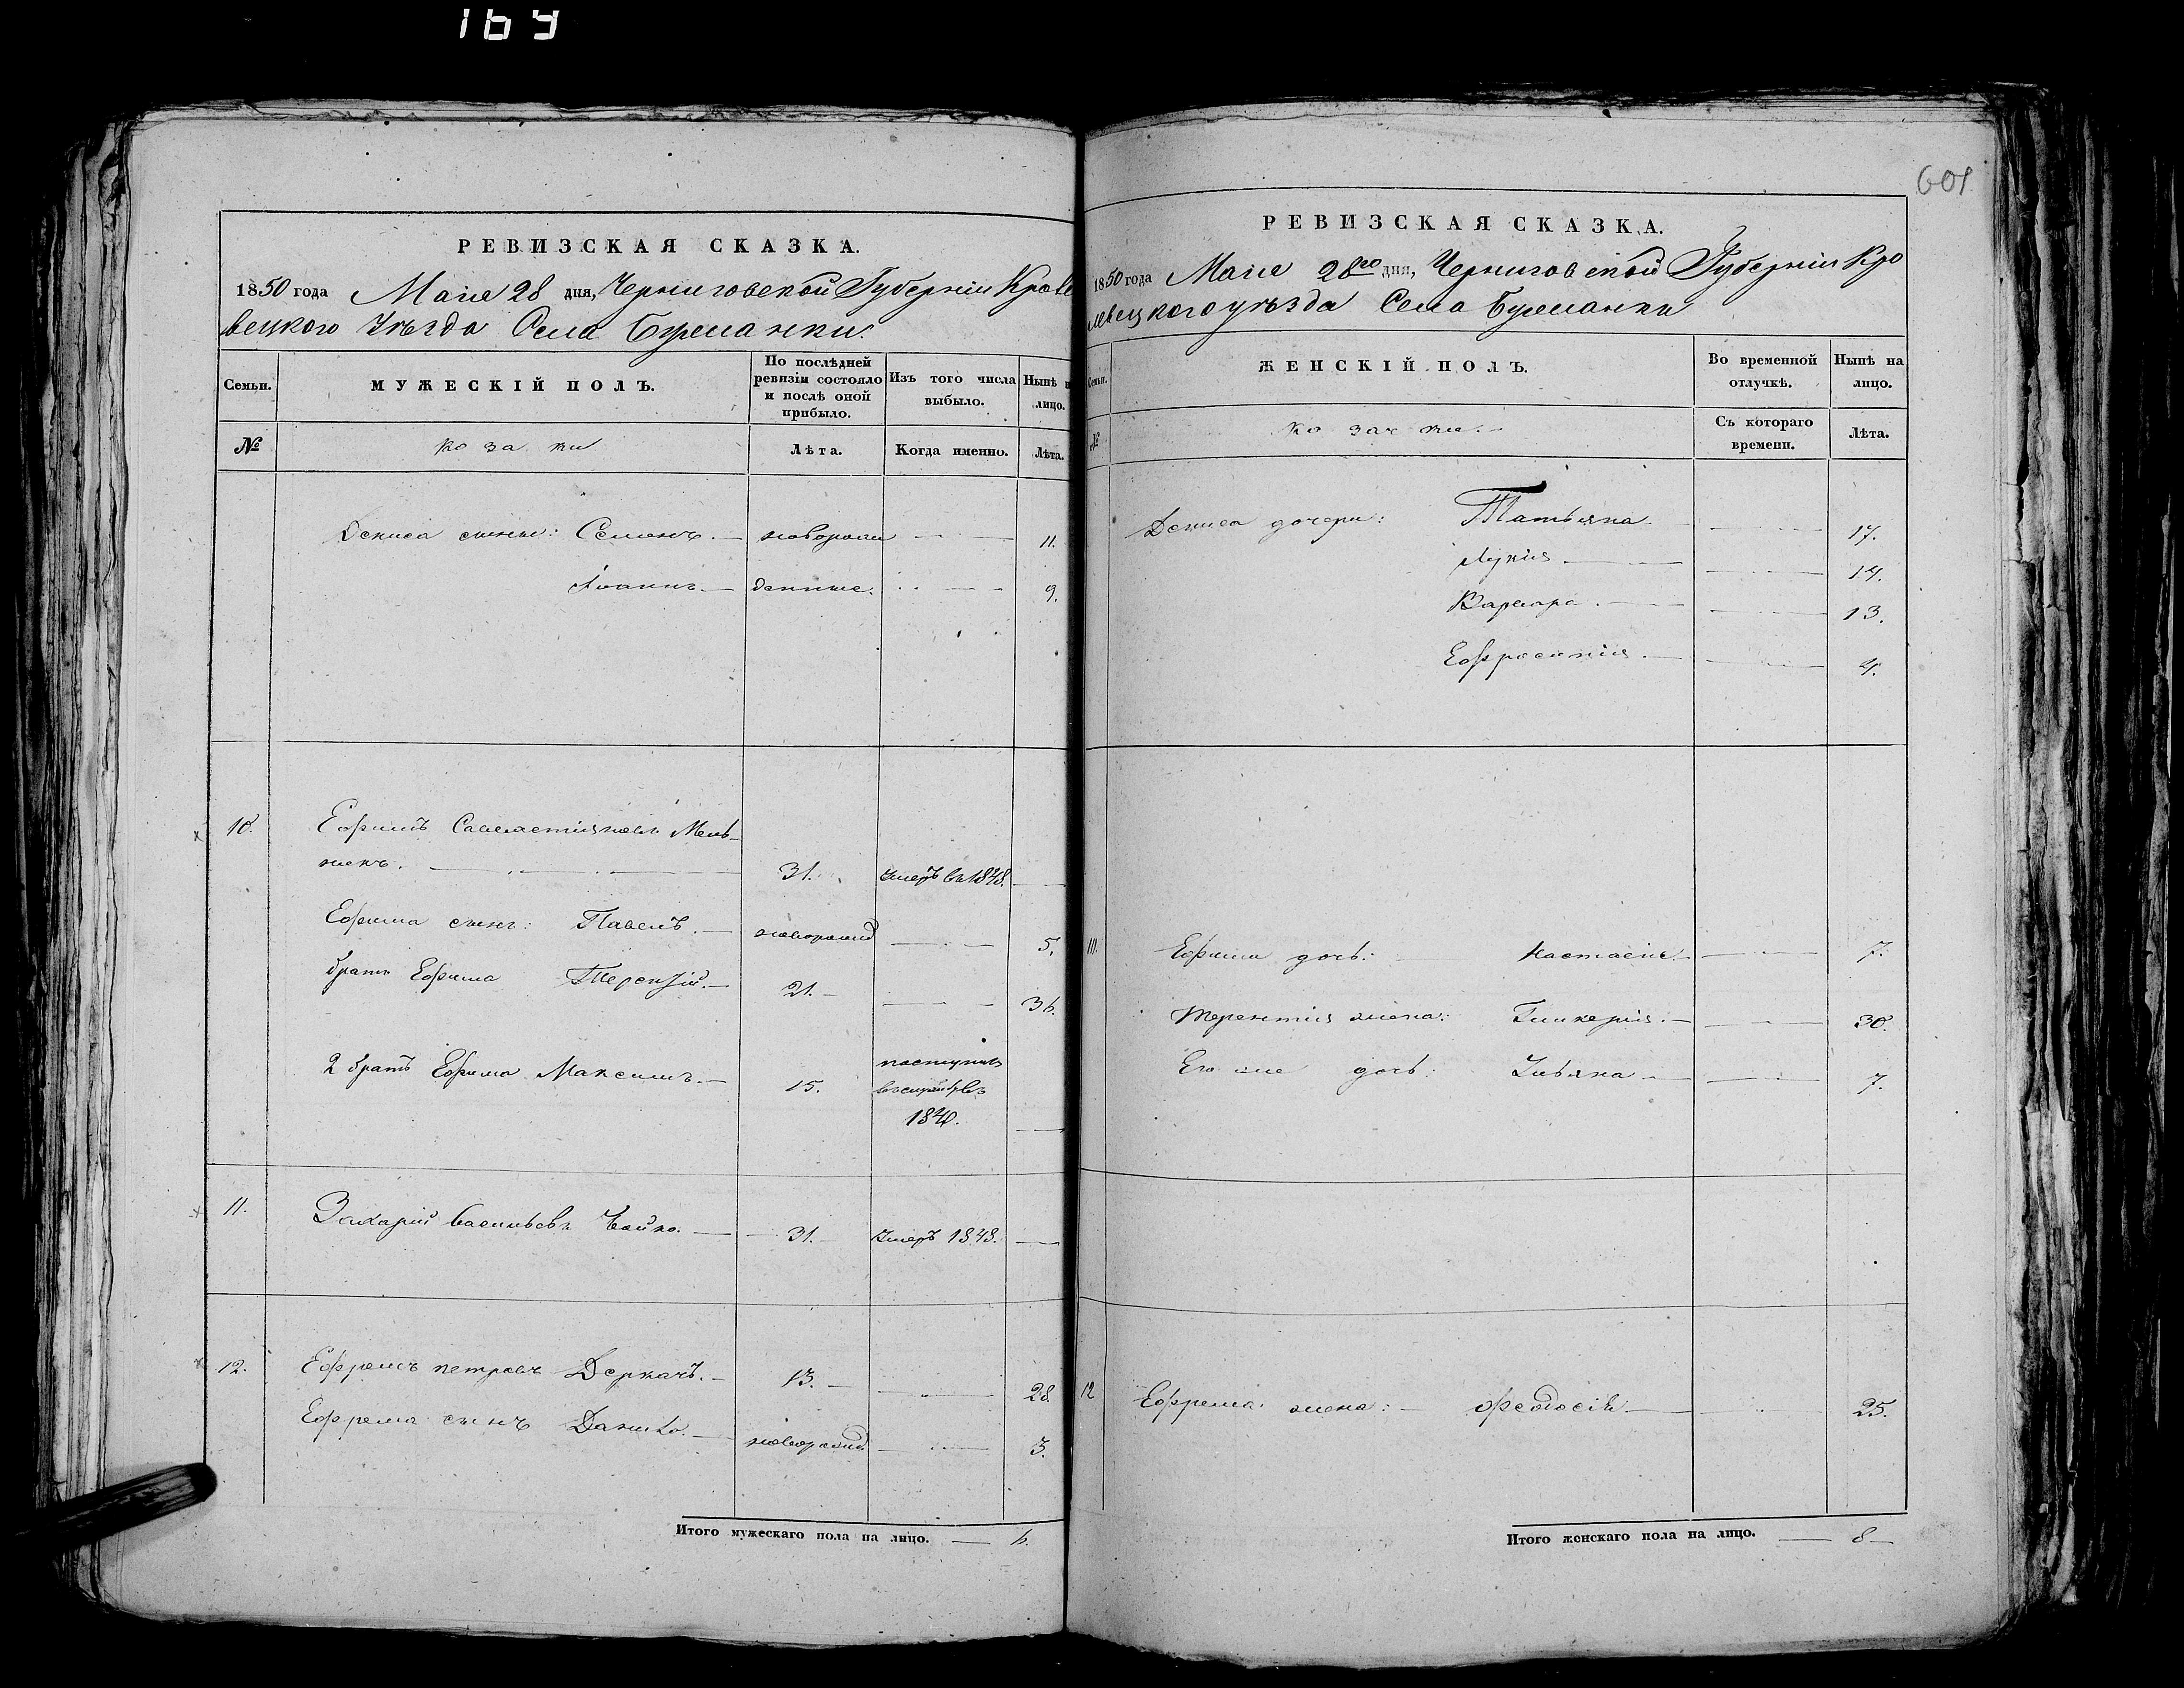 169
РЕВИЗСКАЯ СКАЗКА.
1850 года Маие 28 дня, Черниговской Губерніи Кроле
вецкого Уезда Села
Семьи.
МУЖЕСКІЙ ПОЛЪ.
По послѣдней
ревизіи состояло
и послѣ оной
прибыло.
Изъ того числа
выбыло.
Нынѣ н
лицо.
№
козаки
Лѣта.
Когда именно.
Лѣта.
Дениса сыны: Семенъ. новорож 11.
Іоаннъ. денные. 9.
10. Ефимъ Мель-
никъ. 31. умеръ въ 1848.
Ефима сынъ: Павелъ. новорожд 5.
братъ Ефима Терентій. 21. 36.
2 братъ Ефима Максимъ. 15. поступил
1840.
11. Захарій Васильевъ 31. умеръ 1848.
12. Ефремъ петровъ Деркачъ. 13. 28.
Ефрема сынъ Данило. новорожд. 3.
Итого мужескаго пола на лицо. 6.
601
РЕВИЗСКАЯ СКАЗКА.
1850 года Маие 28го дня, Черниговской Губерніи Кро
левецкого уезда Села
Семьи.
ЖЕНСКІЙ ПОЛЪ.
Во временной
отлучкѣ.
Нынѣ на
лицо.
№
козачки.
Съ котораго
времени.
Лѣта.
Дениса дочери: Татьяна 17.
Лукія 14.
Варвара. 13.
Ефросинія. 4.
10. Ефима дочь: Настасіе. 7.
Терентія жена: Гликерія. 30.
Его же дочь: Ульяна 7.
12 Ефрема жена: Феодосія 25.
Итого женскаго пола на лицо. 8